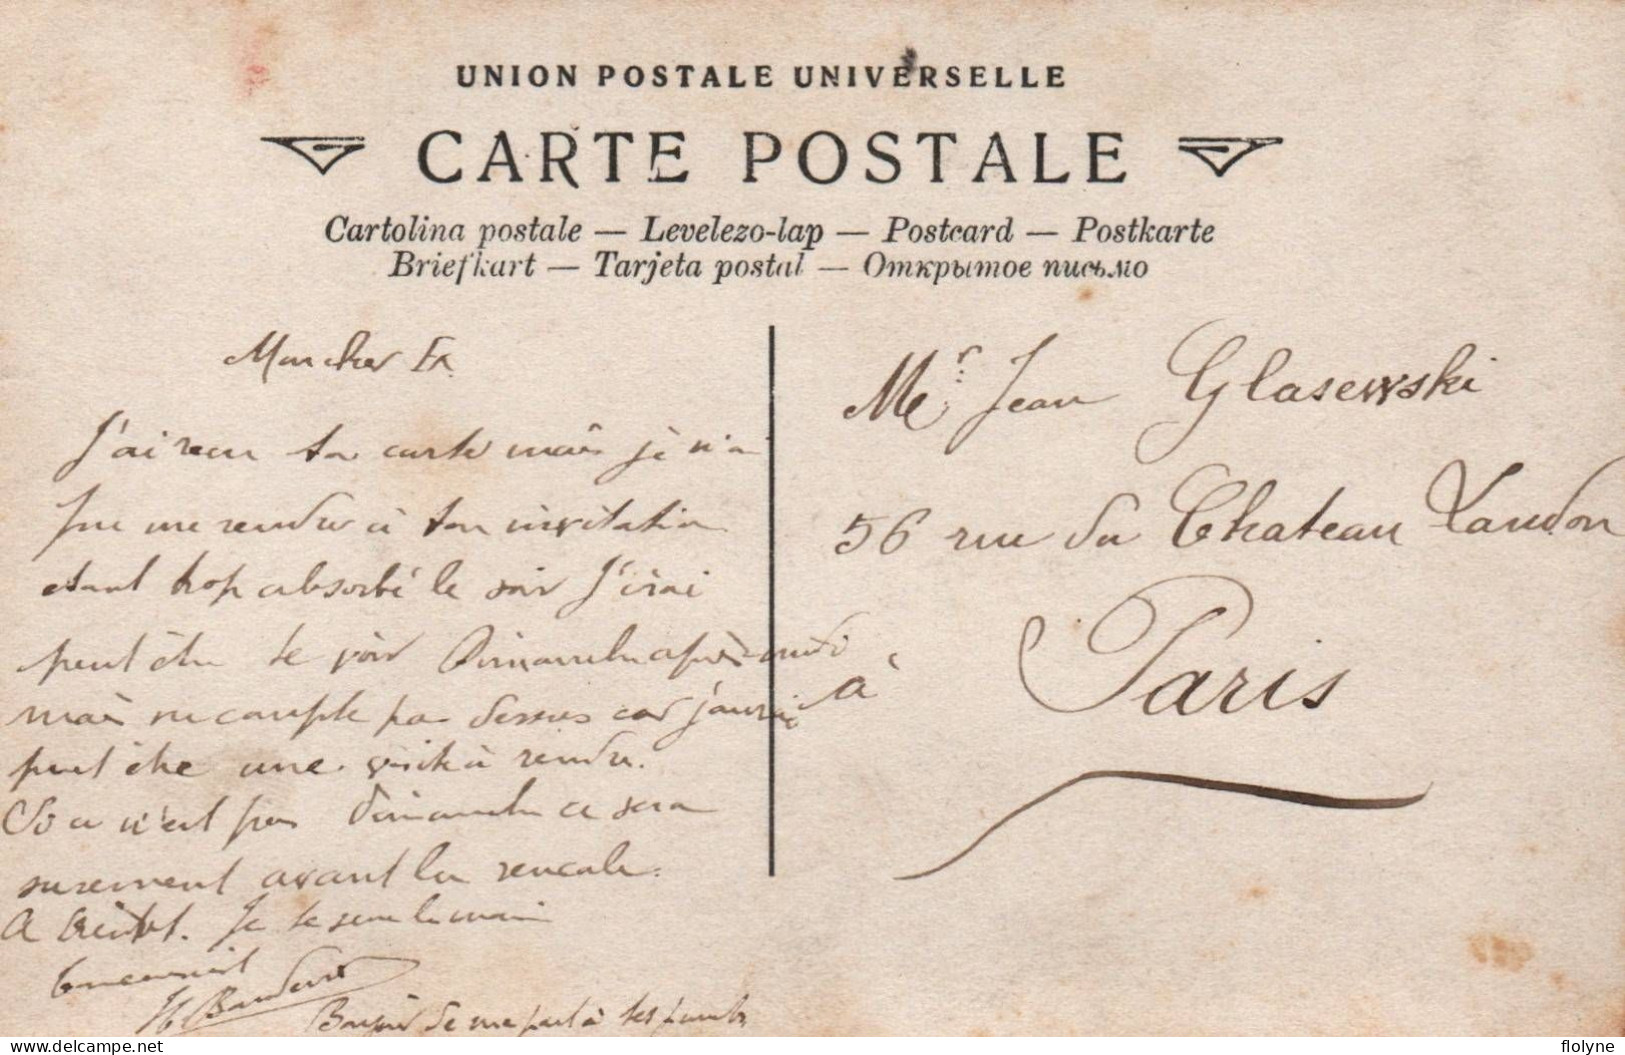 UNION POSTALE UNIVERSELLE
CARTE POSTALE
Cartolina postale — Levelezo-lap — Postcard — Postkarte
Briefkart — Tarjeta postal — Открытое письмо
Mon cher
J'ai reçu ta carte mais je n'ai
pu me rendre à ton invitation
étant trop absorbé le soir J'irai
peut être te voir Dimanche après-midi
mais ne compte pas dessus car j'aurai
peut être une visite à rendre.
Si ce n'est pas Dimanche ce sera
surement avant la
A bientôt. Je te serre la main
H
Bonjour de ma part à tes parents
Mr Jean Glasewski
56 rue du Chateau Landon
à Paris
flolyne